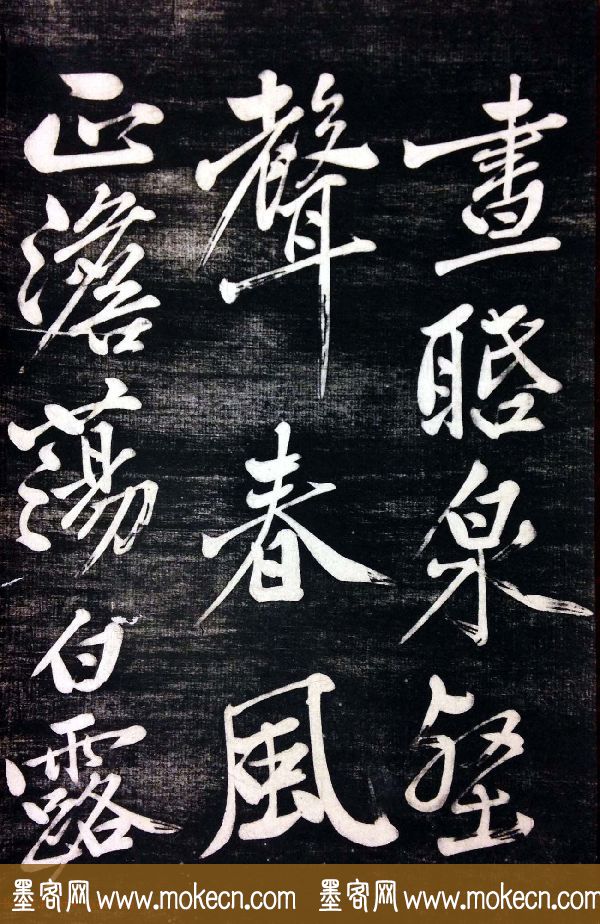 晝聒泉壑
聲春風
正澹蕩白露
墨客网 www.mokecn.com 墨客网 www.mokecn.com